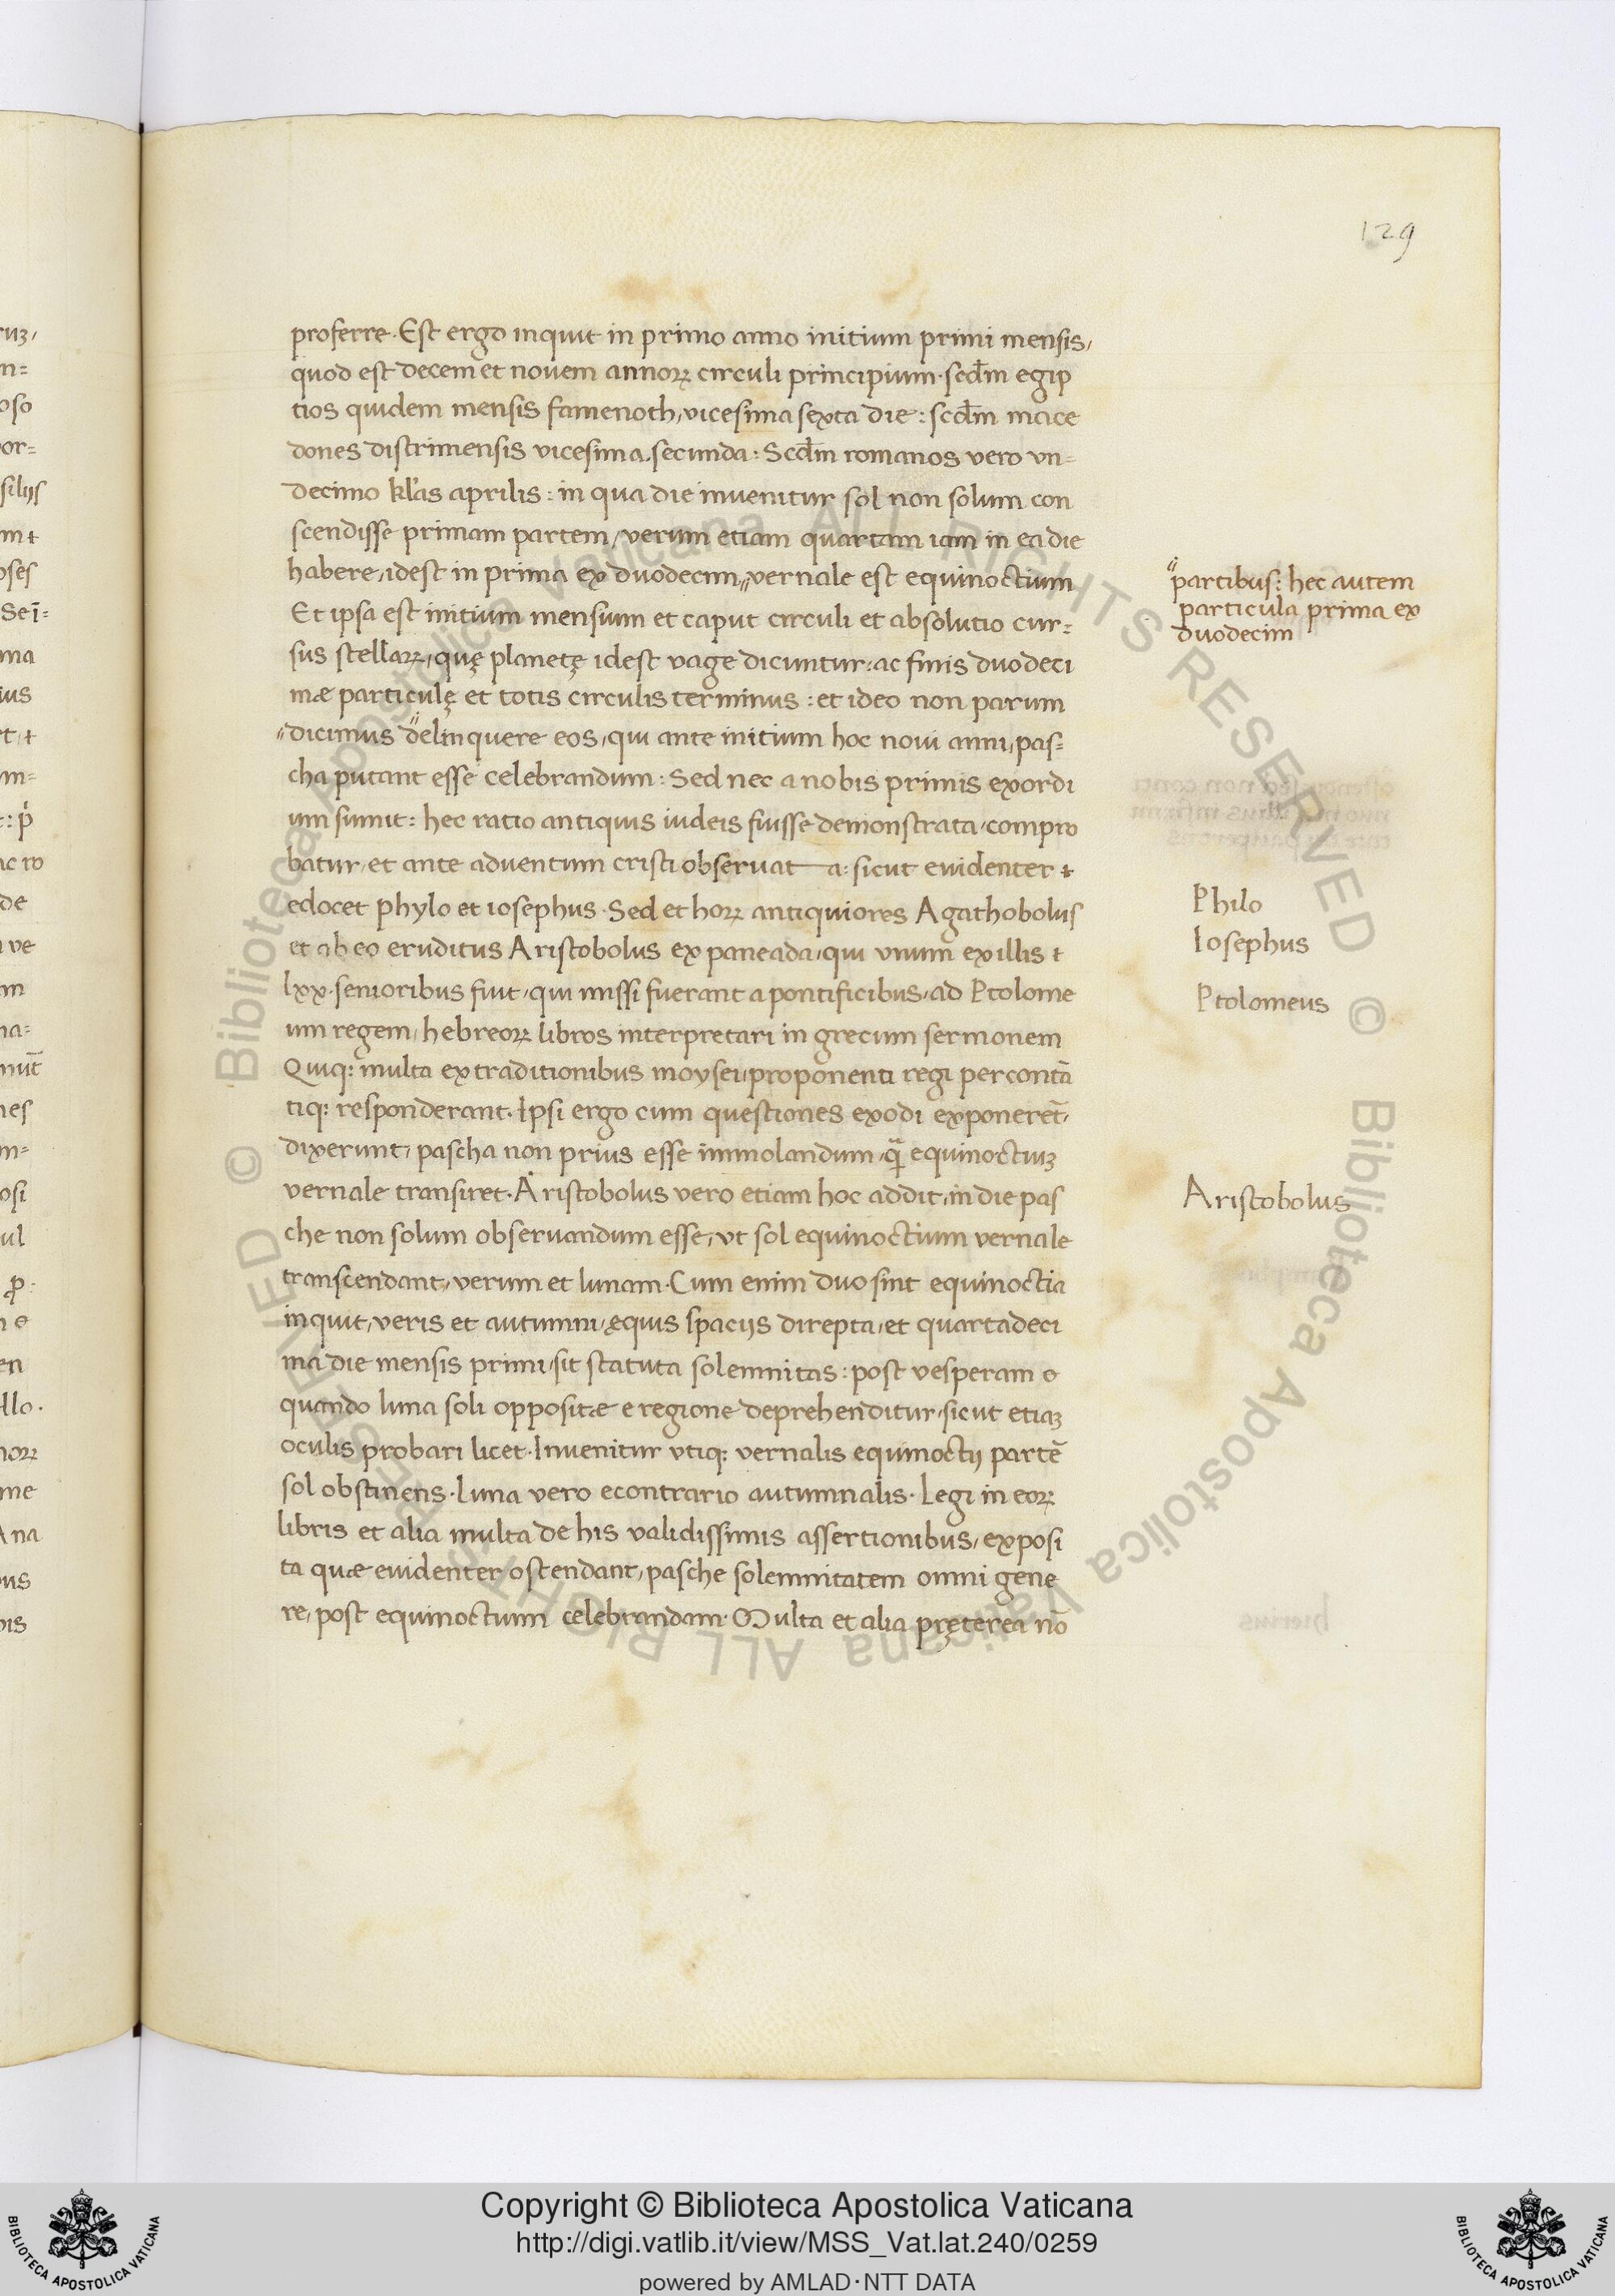 129
proferre. Est ergo inquit in primo anno initium primi mensis,
quod est decem et novem annoꝝ circuli principium. scd̄m egip
tios quidem mensis famenoth, vicesima sexta die: scd̄m mace
dones distri mensis vicesima secunda: Scd̄m romanos vero vn=
decimo kl̄as aprilis: in qua die invenitur sol non solum con
scendisse primam partem, verum etiam quartam iam in ea die
habere, idest in prima ex duodecim,,vernale est equinoctium
Et ipsa est initium mensium et caput circuli et absolutio cur=
sus stellaꝝ, quę planetę idest vage dicuntur: ac finis duodeci
mæ particulę et totis circulis terminus: et ideo non parum
"dicimus "delinquere eos, qui ante initium hoc novi anni, pas=
cha putant esse celebrandum: Sed nec a nobis primis exordi
um sumit: hec ratio antiquis iudeis fuisse demonstrata, compro
batur, et ante adventum cristi observat a: sicut evidenter
edocet phylo et iosephus. Sed et hoꝝ antiquiores Agathobolus
et ab eo eruditus Aristobolus ex paneada, qui vnum ex illis
lxx. senioribus fuit, qui missi fuerant a pontificibus, ad Ptolome
um regem, hebreoꝝ libros interpretari in grecum sermonem
Quiq: multa ex traditionibus moysei, proponenti regi percontā
tiq: responderant. Ipsi ergo cum questiones exodi exponerēt,
dixerunt, pascha non prius esse immolandum, qᷓ equinoctiuꝫ
vernale transiret. Aristobolus vero etiam hoc addit, in die pas
che non solum observandum esse, vt sol equinoctium vernale
transcendant, verum et lunam. Cum enim duo sint equinoctia
inquit, veris et autumni, ęquis spaciis direpta, et quartadeci
ma die mensis primi, sit statuta solemnitas: post vesperam
quando luna soli oppositæ e regione deprehenditur, sicut etiaꝫ
oculis probari licet. Invenitur vtiq: vernalis equinoctij partē
sol obstinens. Luna vero econtrario autumnalis. Legi in eoꝝ
libris et alia multa de his validissimis assertionibus, exposi
ta quæ evidenter ostendant, pasche solemnitatem omni gene
re, post equinoctium celebrandam. Multa et alia pręterea nō
partibus: hec autem
particula prima ex
duodecim
Philo
Iosephus
Ptolomeus
Aristobolus
Copyright © Biblioteca Apostolica Vaticana
http://digi.vatlib.it/view/MSS_Vat.lat.240/0259
powered by AMLAD·NTT DATA